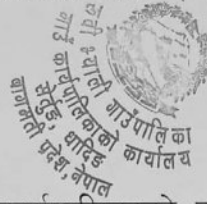 रुबी भ्याली गाउँपालिका
गाउँ कार्यपालिकाको कार्यालय
सेर्तुङ, धादिङ
बागमती प्रदेश, नेपाल